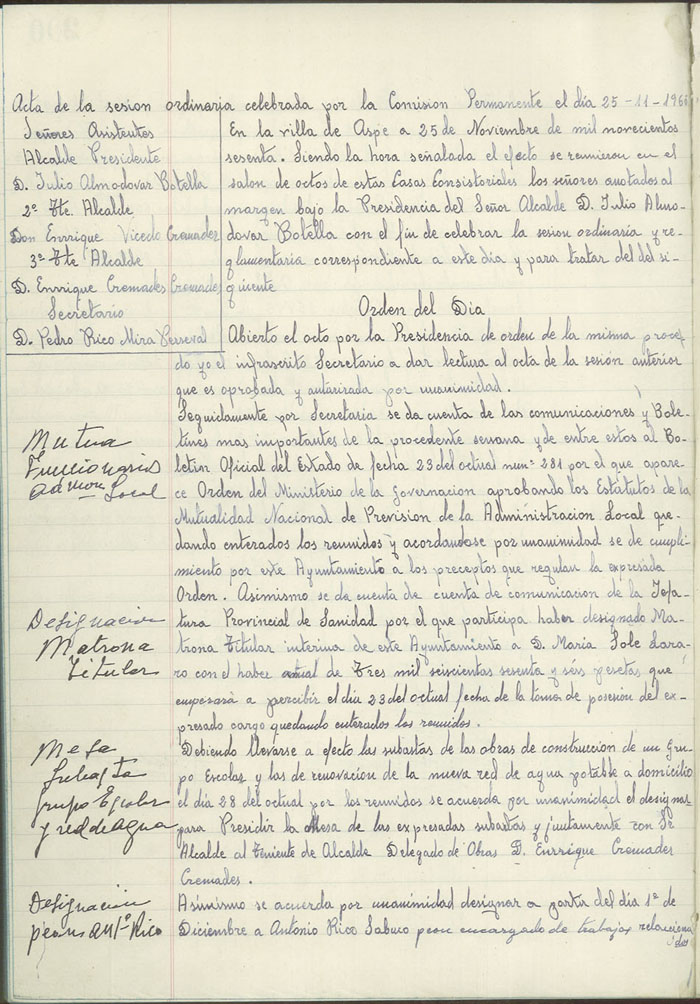 Acta de la sesion ordinaria celebrada por la Comision Permanente el día 25-11-1960
Señores Asistentes
Alcalde Presidente
D. Julio Almodovar Botella
2º Tte. Alcalde
Don Enrrique Vicedo Cremades
3º Tte Alcalde
D. Enrrique Cremades Cremades
Secretario
D. Pedro Rico Mira Perreval
En la villa de Aspe a 25 de Noviembre de mil novecientos
sesenta. Siendo la hora señalada el efecto se reunieron en el
salon de actos de estas Casas Consistoriales los señores anotados al
margen bajo la Presidencia del Señor Alcalde D. Julio Almo-
dovar Botella con el fin de celebrar la sesion ordinaria y re-
glamentaria correspondiente a este dia y para tratar del del si-
guiente
Orden del Dia
Abierto el acto por la Presidencia de orden de la misma proce-
do yo el infrascrito Secretario a dar lectura al acta de la sesión anterior
que es aprobada y autorizada por unanimidad.
Seguidamente por Secretaria se da cuenta de las comunicaciones y Bole-
Mutua
Funcionarios
Admon Local
tines mas importantes de la procedente semana y de entre estos al Bo-
letin Oficial del Estado de fecha 23 del actual num. 281 por el que apare-
ce Orden del Ministerio de la Governacion aprobando los Estatutos de la
Mutualidad Nacional de Prevision de la Administracion Local que-
dando enterados los reunidos y acordandose por unanimidad se de cumpli-
miento por este Ayuntamiento a los preceptos que regulan la expresada
Orden. Asimismo se da cuenta de cuenta de comunicacion de la Jefa-
Designacion
Matrona
Titular
tura Provincial de Sanidad por el que participa haber designado Ma-
trona Titular interina de este Ayuntamiento a D. Maria Sole Lara-
ro con el haber anual de Tres mil seiscientas sesenta y séis pesetas que
empesará a percibir el dia 23 del actual fecha de la toma de posesión del ex-
presado cargo quedando enterados los reunidos.
Mesa
Subasta
Grupo Escolar
y red de agua
Debiendo llevarse a efecto las subastas de las obras de construccion de un Gru-
po Escolar y las de renovacion de la nueva red de agua potable a domicilio
el día 28 del actual por los reunidos se acuerda por unanimidad el designar
para Presidir la Mesa de las expresadas subastas y juntamente con Sr
Alcalde al Teniente de Alcalde Delegado de Obras D. Enrrique Cremades
Cremades.
Designacion
peon Antº Rico
Asimismo se acuerda por unanimidad designar a partir del dia 1º de
Diciembre a Antonio Rico Sabuco peon encargado de trabajos relaciona
dos